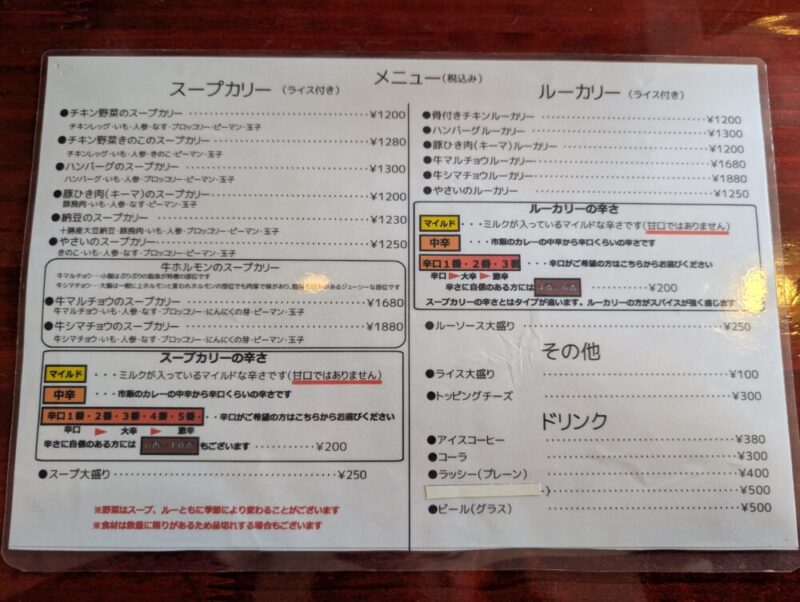 メニュー(税込み)
スープカリー (ライス付き)
●チキン野菜のスープカリー ¥1200
チキンレッグ・いも・人参・なす・ブロッコリー・ピーマン・玉子
●チキン野菜きのこのスープカリー ¥1280
チキンレッグ・いも・人参・きのこ・ピーマン・玉子
●ハンバーグのスープカリー ¥1300
ハンバーグ・いも・人参・ブロッコリー・ピーマン・玉子
●豚ひき肉(キーマ)のスープカリー ¥1200
豚挽肉・いも・人参・なす・ブロッコリー・ピーマン・玉子
●納豆のスープカリー ¥1230
十勝産大豆納豆・豚挽肉・いも・人参・ブロッコリー・ピーマン・玉子
●やさいのスープカリー ¥1250
きのこ・いも・人参・なす・ブロッコリー・ピーマン・玉子
牛ホルモンのスープカリー
牛マルチョウ・・・小腸はぷりぷりの脂身が特徴の部位です
牛シマチョウ・・・大腸は一般に上ホルモンと言われホルモンの部位でも肉厚で味があり、があるジューシーな部位です
●牛マルチョウのスープカリー ¥1680
牛マルチョウ・いも・人参・なす・ブロッコリー・にんにくの芽・ピーマン・玉子
●牛シマチョウのスープカリー ¥1880
牛シマチョウ・いも・人参・なす・ブロッコリー・にんにくの芽・ピーマン・玉子
スープカリーの辛さ
マイルド ・・・ミルクが入っているマイルドな辛さです(甘口ではありません)
中辛 ・・・市販のカレーの中辛から辛口くらいの辛さです
辛口1番・2番・3番・4番・5番 ・・辛口がご希望の方はこちらからお選びください
辛口 ▶ 大辛 ▶ 激辛
辛さに自信のある方には もございます ¥200
●スープ大盛り ¥250
※野菜はスープ、ルーともに季節により変わることがございます
※食材は数量に限りがあるため品切れする場合もございます
ルーカリー (ライス付き)
●骨付きチキンルーカリー ¥1200
●ハンバーグルーカリー ¥1300
●豚ひき肉(キーマ)ルーカリー ¥1200
●牛マルチョウルーカリー ¥1680
●牛シマチョウルーカリー ¥1880
●やさいのルーカリー ¥1250
ルーカリーの辛さ
マイルド ・・・ミルクが入っているマイルドな辛さです(甘口ではありません)
中辛 ・・・市販のカレーの中辛から辛口くらいの辛さです
辛口1番・2番・3番 ・・・辛口がご希望の方はこちらからお選びください
辛口 ▶ 大辛 ▶ 激辛
辛さに自信のある方には ¥200
スープカリーの辛さとはタイプが違います。ルーカリーの方がスパイスが強く感じます
●ルーソース大盛り ¥250
その他
●ライス大盛り ¥100
●トッピングチーズ ¥300
ドリンク
●アイスコーヒー ¥380
●コーラ ¥300
●ラッシー(プレーン) ¥400
) ¥500
●ビール(グラス) ¥500